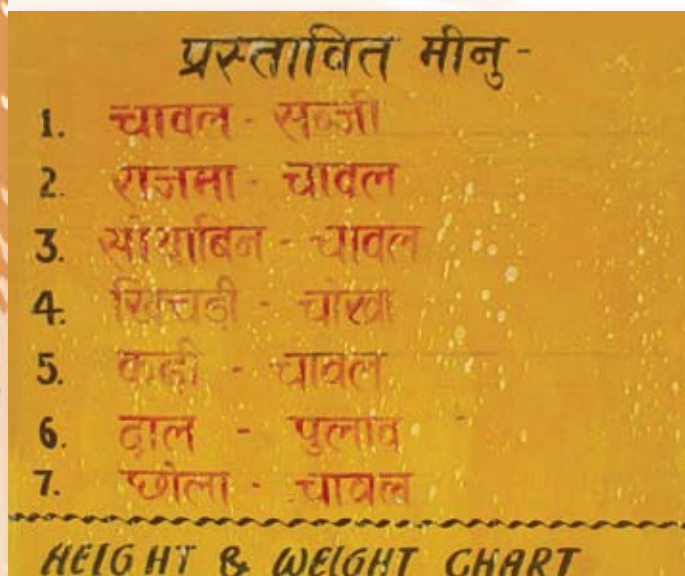 प्रस्तावित मीनु -
1. चावल - सब्जी
2. राजमा - चावल
3. सोयाबिन - चावल
4. खिचडी - चोखा
5. कढी - चावल
6. दाल - पुलाव
7. छोला - चावल
HEIGHT & WEIGHT CHART